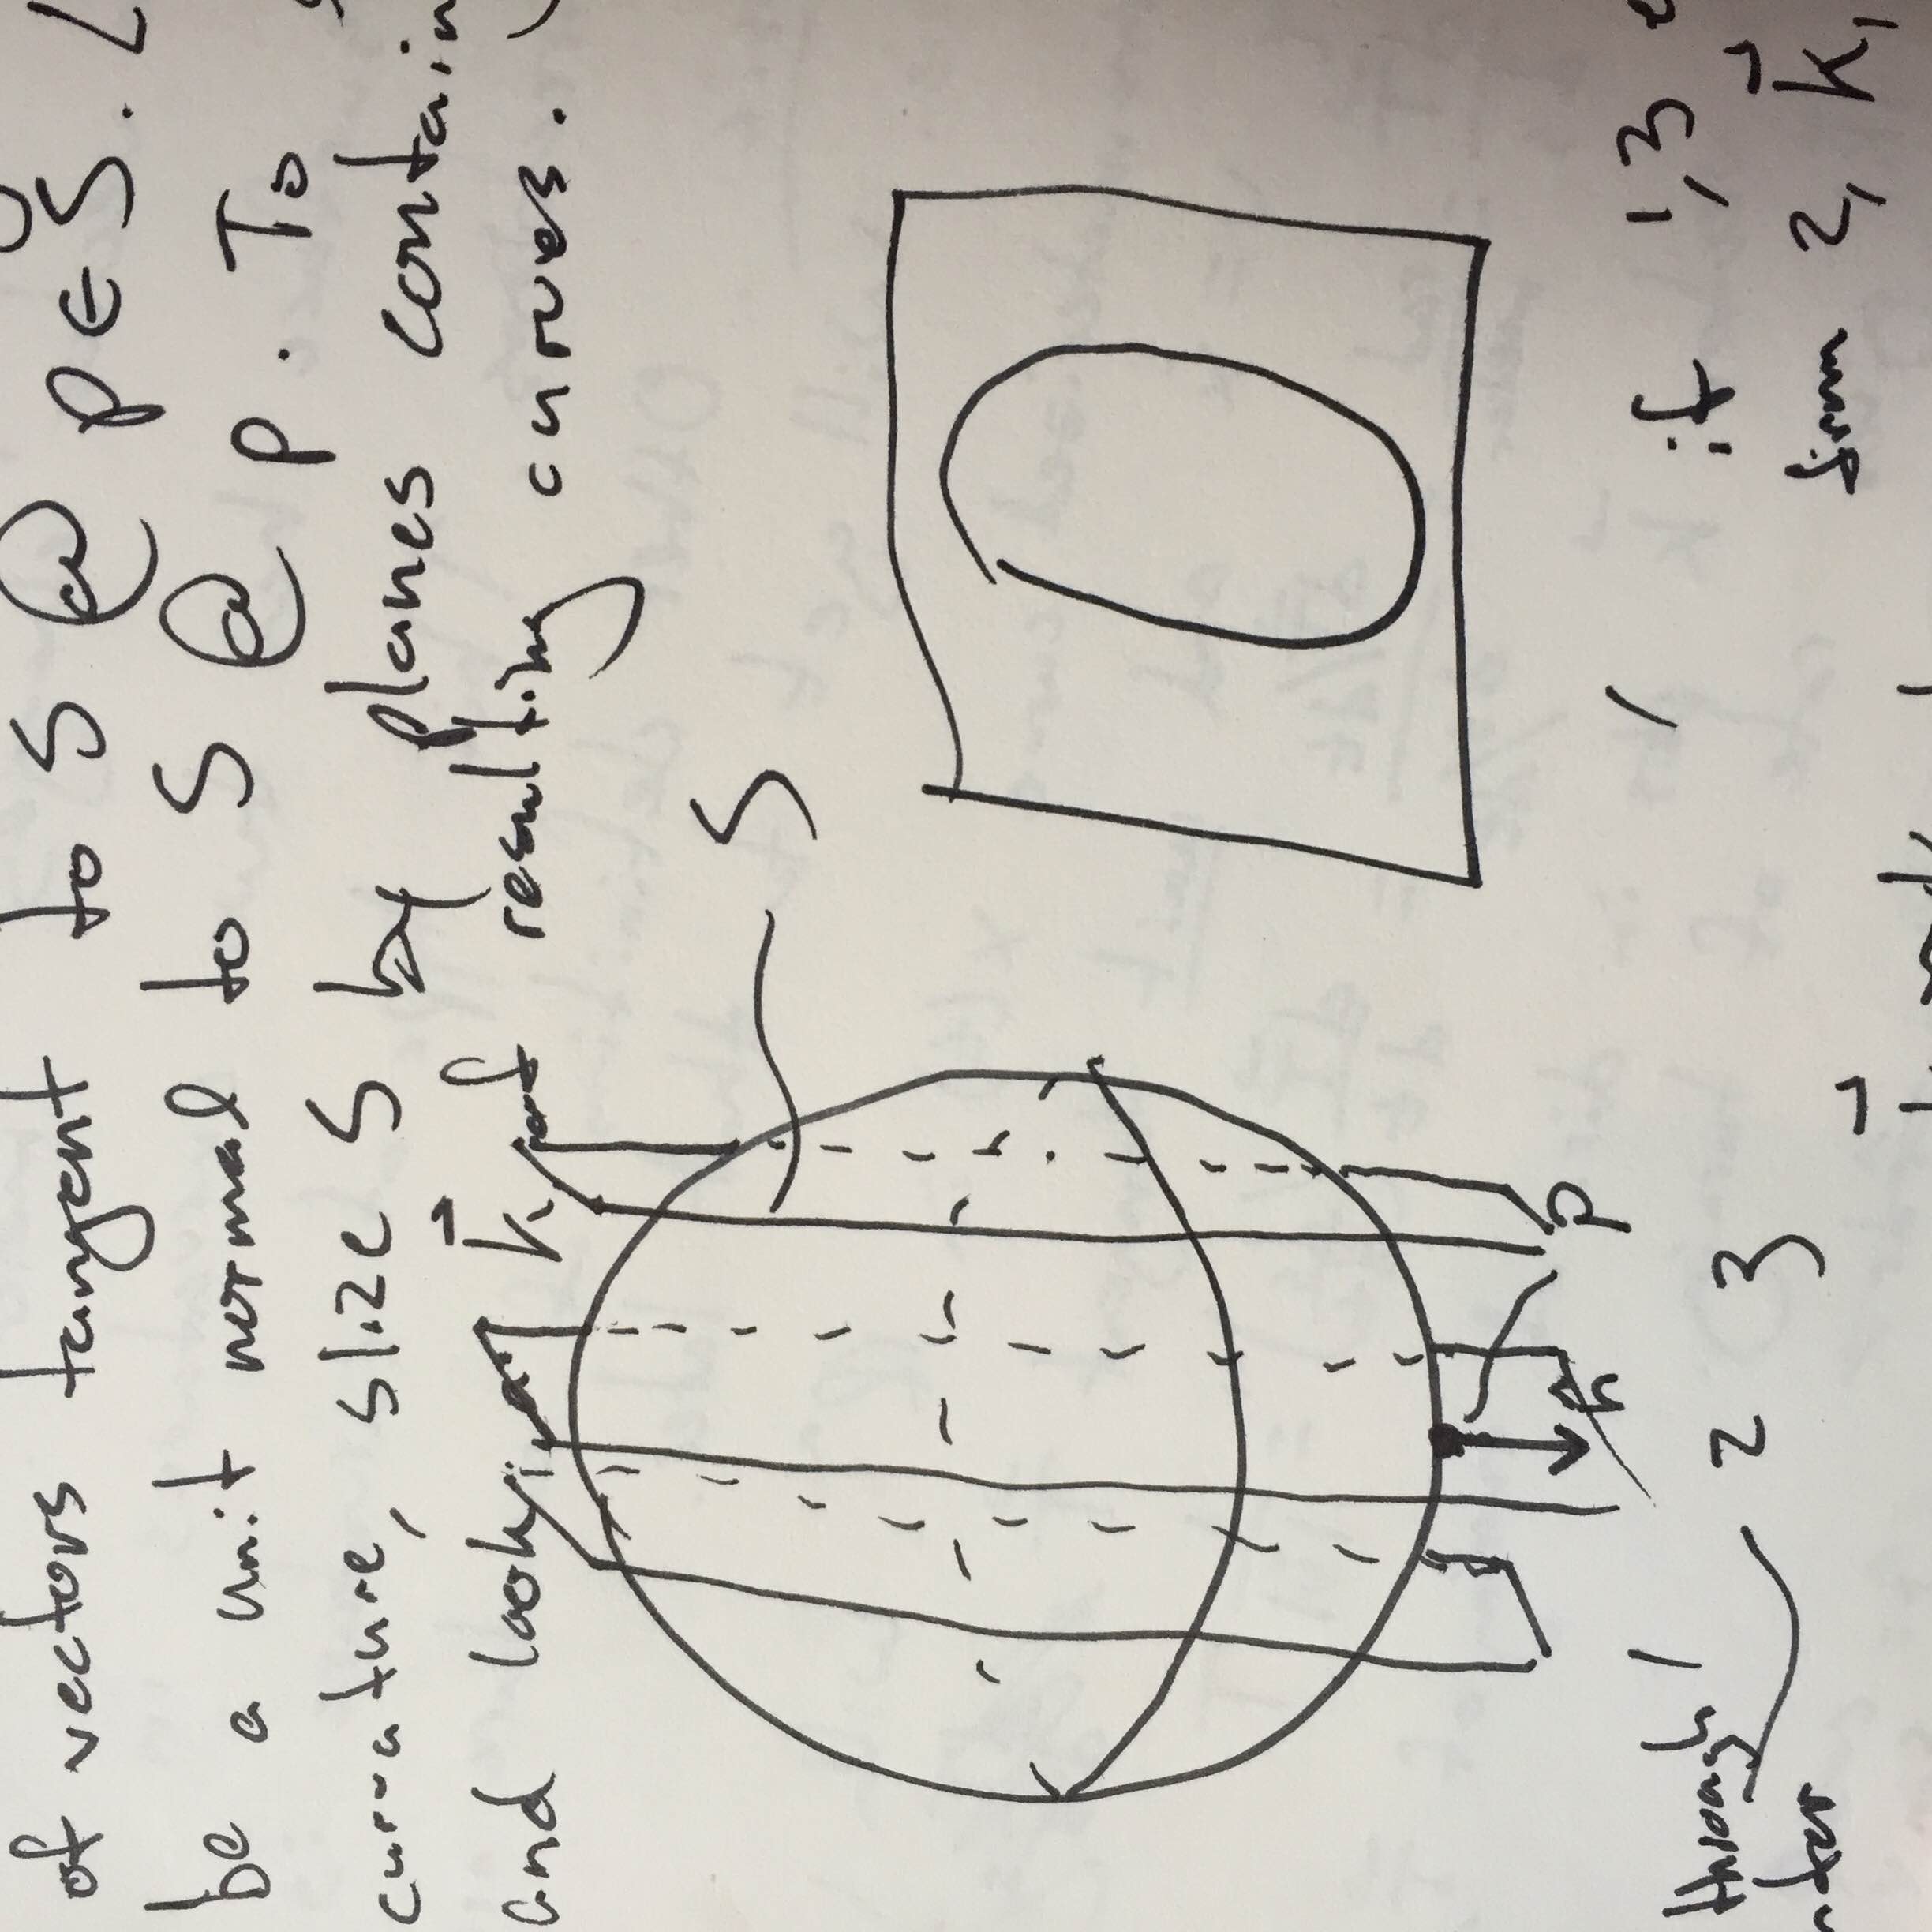 of vectors tangent to S @ p ∈ S.
be a unit normal to S @ p. To
curvature, slize S by planes contain
and look at k⃗ of resulting curves.
S
n̂
p
through 1
2 3
nter
1
if 1,3
from 2, k⃗,